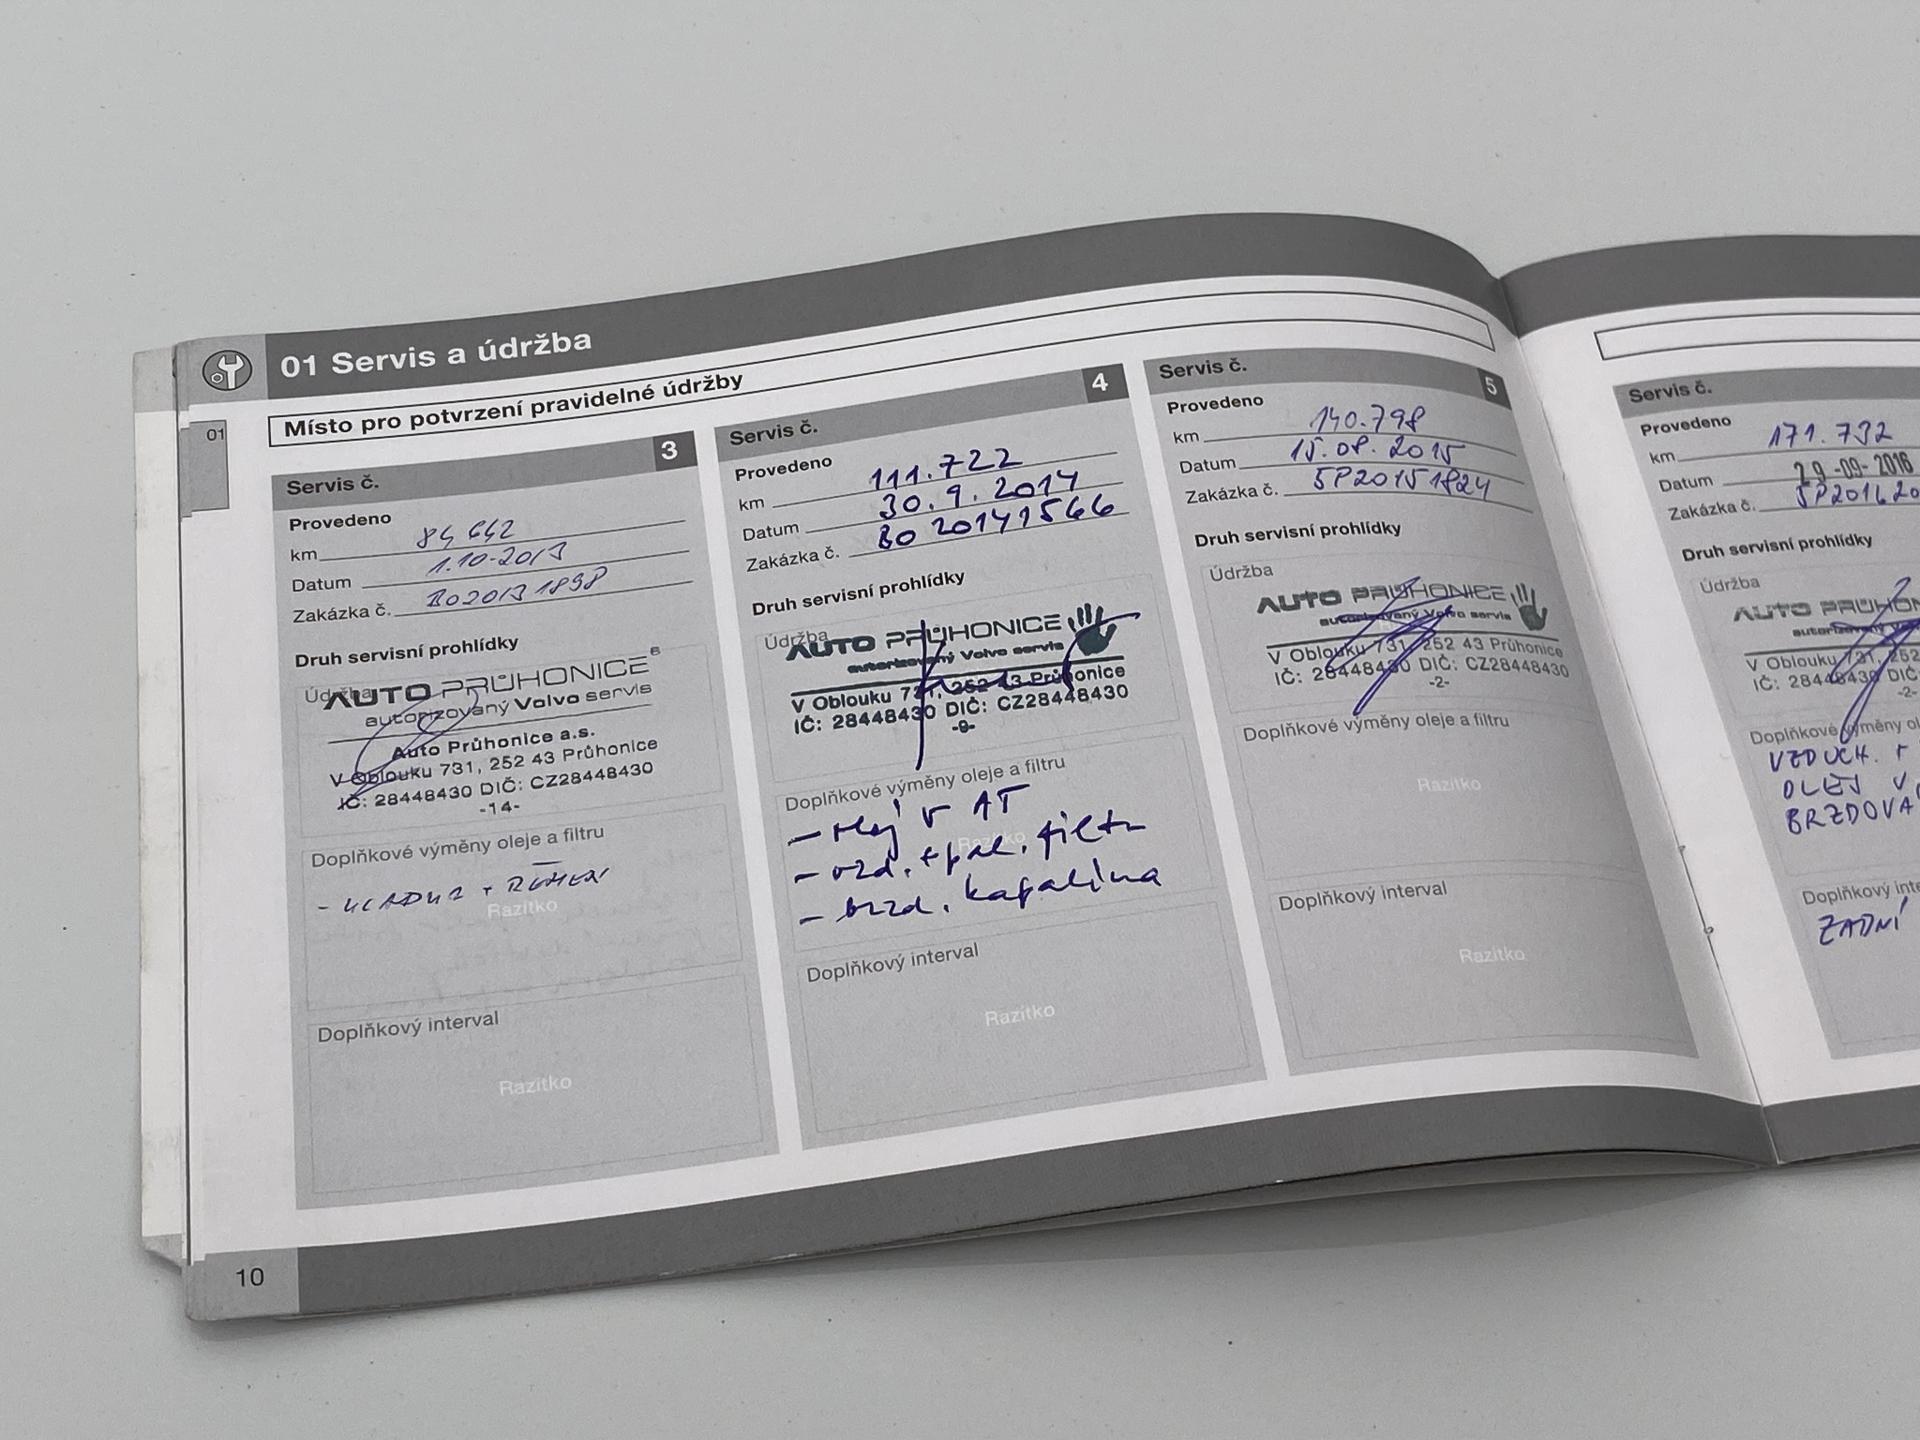 01 Servis a údržba
Místo pro potvrzení pravidelné údržby
01
Servis č. 3
Provedeno
km 84 642
Datum 1.10.2013
Zakázka č. BO2013 1898
Druh servisní prohlídky
Údržba
AUTO PRŮHONICE®
autorizovaný Volvo servis
Auto Průhonice a.s.
V Oblouku 731, 252 43 Průhonice
IČ: 28448430 DIČ: CZ28448430
-14-
Doplňkové výměny oleje a filtru
Razítko
Doplňkový interval
Razítko
Servis č. 4
Provedeno
km 111.722
Datum 30.9.2014
Zakázka č. BO 20141566
Druh servisní prohlídky
Údržba
AUTO PRŮHONICE
autorizovaný Volvo servis
V Oblouku 731, 252 43 Průhonice
IČ: 28448430 DIČ: CZ28448430
-9-
Doplňkové výměny oleje a filtru
- olej v AT
- vzd. + pal. filtr
- brzd. kapalina
Razítko
Doplňkový interval
Razítko
Servis č. 5
Provedeno
km 140.798
Datum 15.08.2015
Zakázka č. SP20151824
Druh servisní prohlídky
Údržba
AUTO PRŮHONICE
autorizovaný Volvo servis
V Oblouku 731, 252 43 Průhonice
IČ: 28448430 DIČ: CZ28448430
-2-
Doplňkové výměny oleje a filtru
Razítko
Doplňkový interval
Razítko
Servis č.
Provedeno
km 171.732
Datum 29-09-2016
Zakázka č. SP201620
Druh servisní prohlídky
Údržba
AUTO PRŮHON
autorizovaný V
V Oblouku 731, 252
IČ: 28448430 DIČ
-2-
Doplňkové výměny ol
VZDUCH. +
OLEJ V
BRZDOVA
Doplňkový inte
ZADNÍ
10